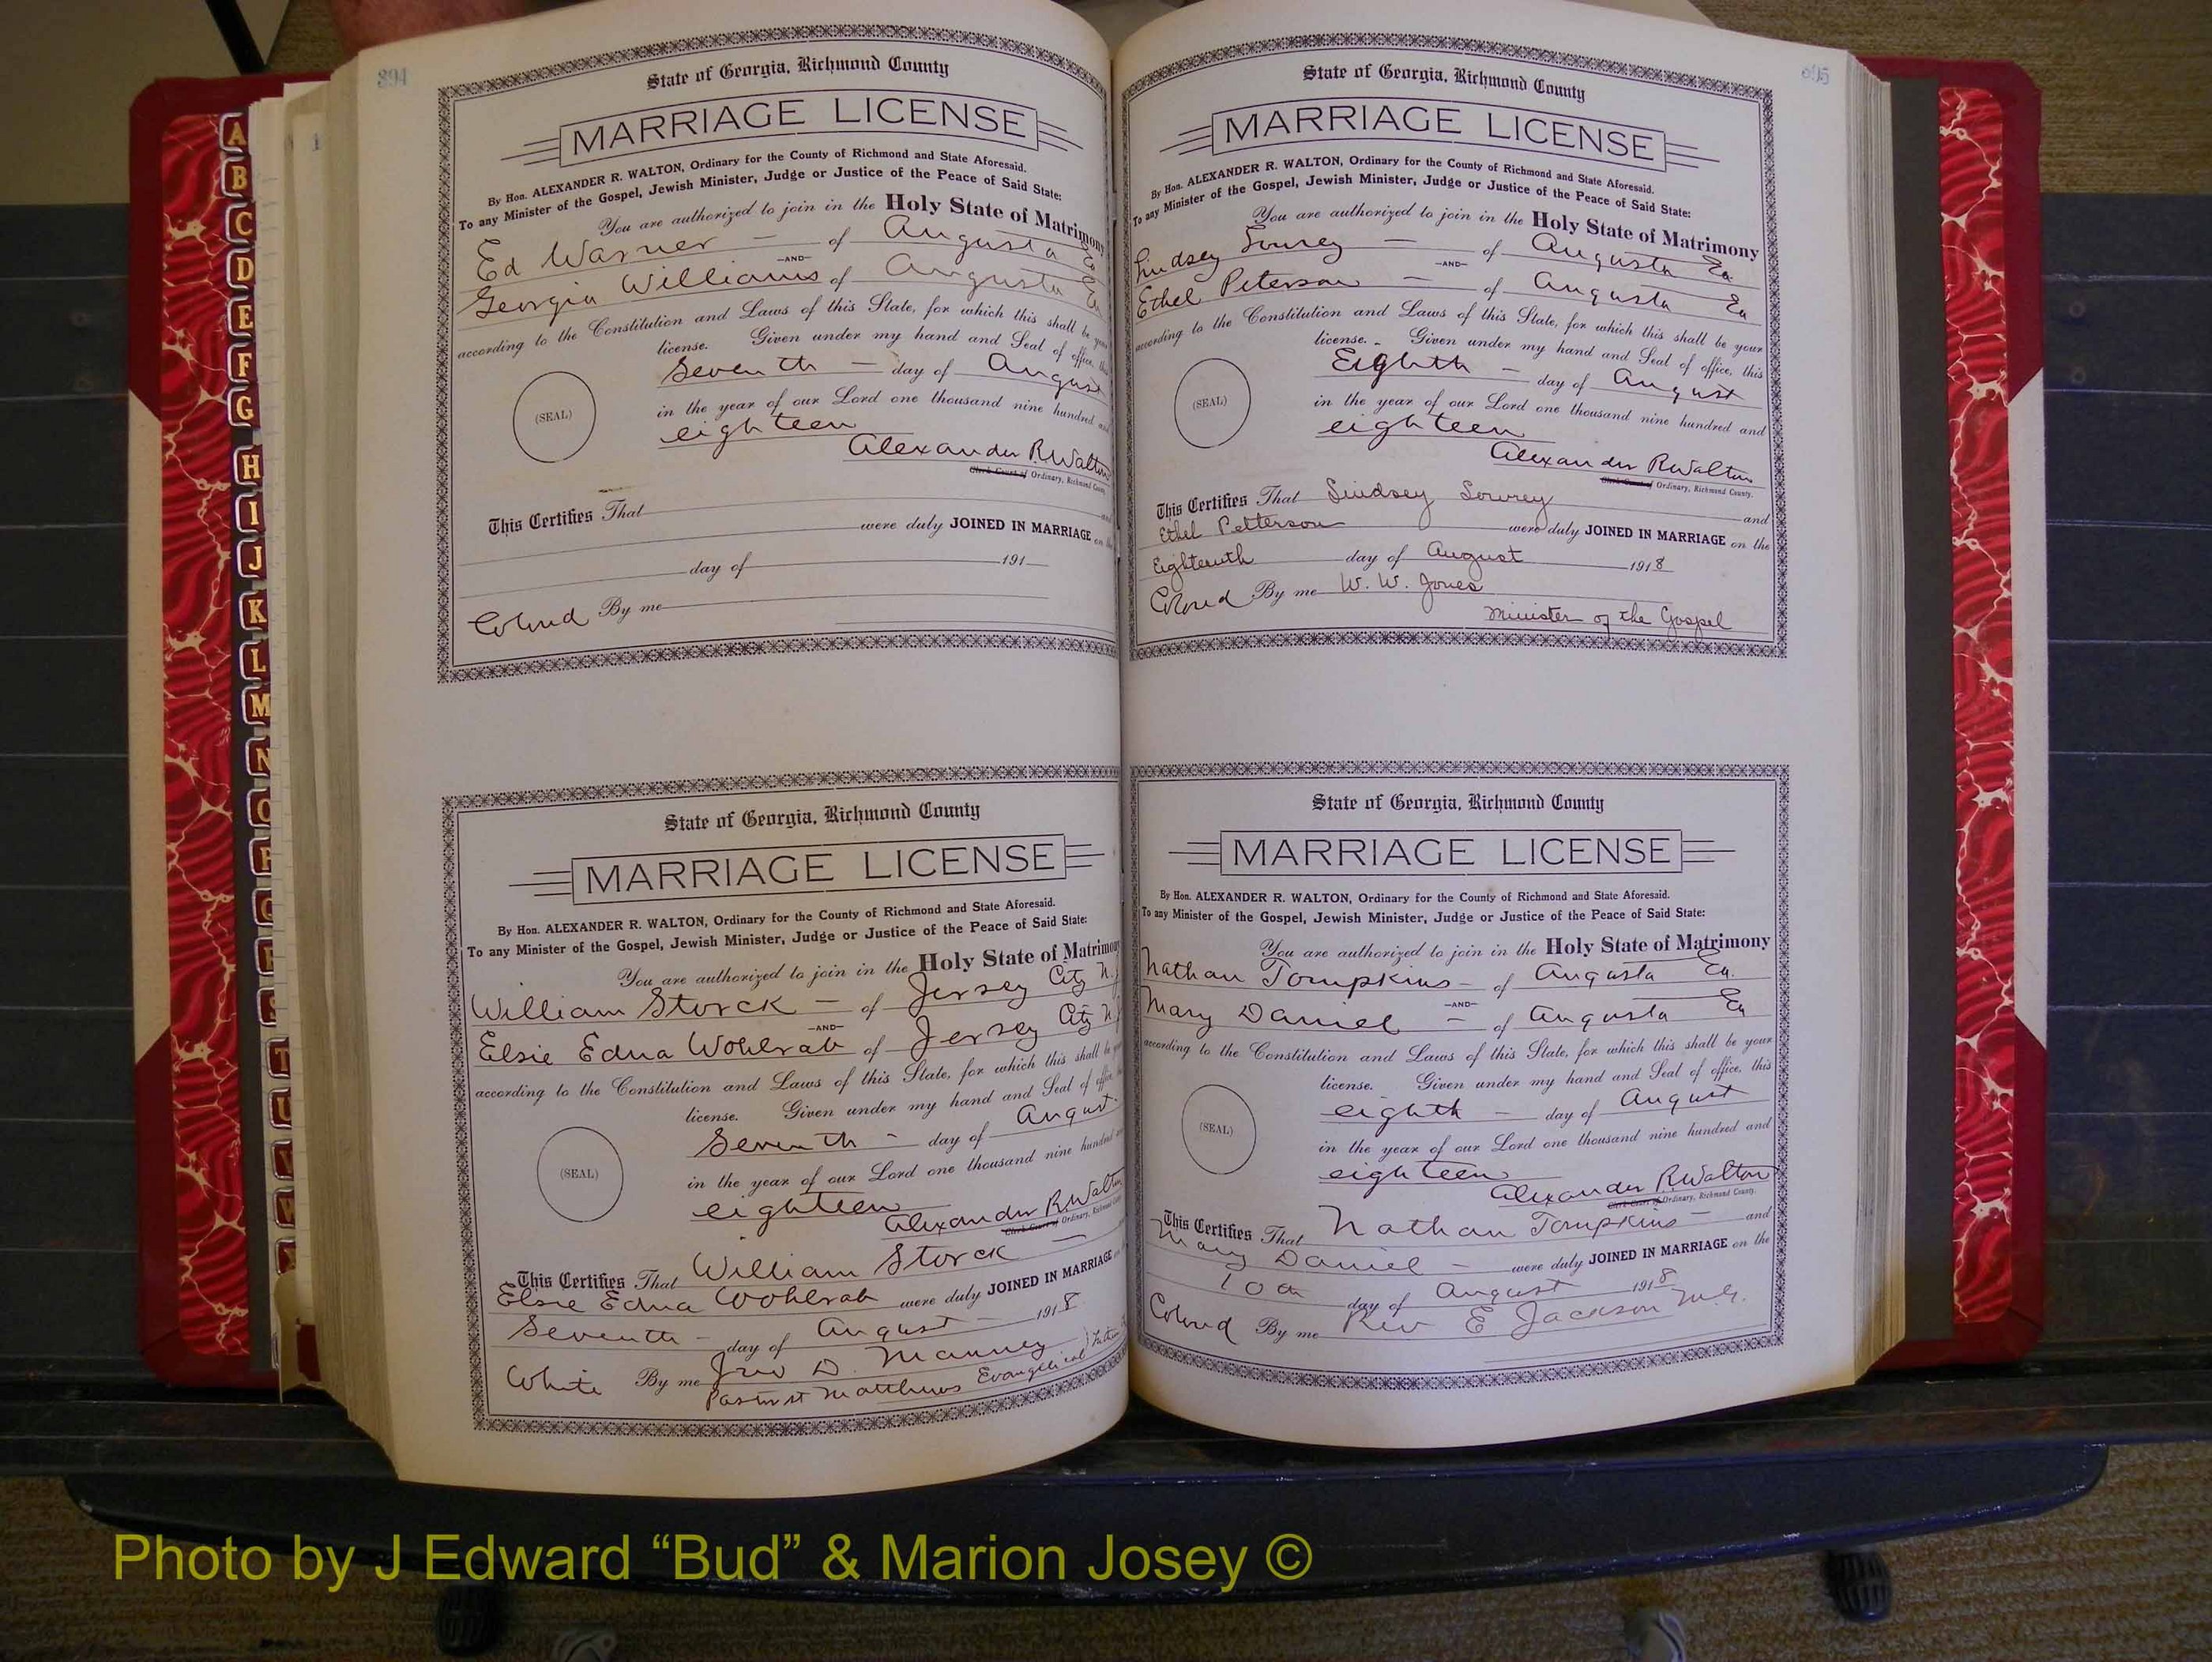 394
State of Georgia, Richmond County
MARRIAGE LICENSE
By Hon. ALEXANDER R. WALTON, Ordinary for the County of Richmond and State Aforesaid.
To any Minister of the Gospel, Jewish Minister, Judge or Justice of the Peace of Said State:
You are authorized to join in the Holy State of Matrimony
Ed Warner — of Augusta Ga
—AND—
Georgia Williams of Augusta Ga
according to the Constitution and Laws of this State, for which this shall be your
license. Given under my hand and Seal of office, this
Seventh — day of August
(SEAL)
in the year of our Lord one thousand nine hundred and
eighteen
Alexander R. Walton
Clerk Court of Ordinary, Richmond County.
This Certifies That and
were duly JOINED IN MARRIAGE on the
day of 191
Colored By me
State of Georgia, Richmond County
MARRIAGE LICENSE
By Hon. ALEXANDER R. WALTON, Ordinary for the County of Richmond and State Aforesaid.
To any Minister of the Gospel, Jewish Minister, Judge or Justice of the Peace of Said State:
You are authorized to join in the Holy State of Matrimony
William Storck — of Jersey City N.J
—AND—
Elsie Edna Wohlrab of Jersey City N.J
according to the Constitution and Laws of this State, for which this shall be your
license. Given under my hand and Seal of office, this
Seventh - day of August
(SEAL)
in the year of our Lord one thousand nine hundred and
eighteen
Alexander R. Walton
Clerk Court of Ordinary, Richmond County.
This Certifies That William Storck —
Elsie Edna Wohlrab were duly JOINED IN MARRIAGE on the
Seventh - day of August - 1918
White By me Jno D. Manney
Pastor St Matthews Evangelical Lutheran
395
State of Georgia, Richmond County
MARRIAGE LICENSE
By Hon. ALEXANDER R. WALTON, Ordinary for the County of Richmond and State Aforesaid.
To any Minister of the Gospel, Jewish Minister, Judge or Justice of the Peace of Said State:
You are authorized to join in the Holy State of Matrimony
Lindsey Lowrey — of Augusta Ga.
—AND—
Ethel Peterson — of Augusta Ga
according to the Constitution and Laws of this State, for which this shall be your
license. Given under my hand and Seal of office, this
Eighth - day of August
(SEAL)
in the year of our Lord one thousand nine hundred and
eighteen
Alexander R. Walton
Clerk Court of Ordinary, Richmond County.
This Certifies That Lindsey Lowrey and
Ethel Petterson were duly JOINED IN MARRIAGE on the
Eighteenth day of August 1918
Colored By me W. W. Jones
Minister of the Gospel
State of Georgia, Richmond County
MARRIAGE LICENSE
By Hon. ALEXANDER R. WALTON, Ordinary for the County of Richmond and State Aforesaid.
To any Minister of the Gospel, Jewish Minister, Judge or Justice of the Peace of Said State:
You are authorized to join in the Holy State of Matrimony
Nathan Tompkins - of Augusta Ga.
—AND—
Mary Daniel — of Augusta Ga
according to the Constitution and Laws of this State, for which this shall be your
license. Given under my hand and Seal of office, this
eighth - day of August
(SEAL)
in the year of our Lord one thousand nine hundred and
eighteen
Alexander R. Walton
Clerk Court of Ordinary, Richmond County.
This Certifies That Nathan Tompkins — and
Mary Daniel — were duly JOINED IN MARRIAGE on the
10th day of August 1918
Colored By me Rev E Jackson M.G.
A
B
C
D
E
F
G
H
I
J
K
L
M
N
O
P
Q
R
S
T
U
V
W
Photo by J Edward “Bud” & Marion Josey ©